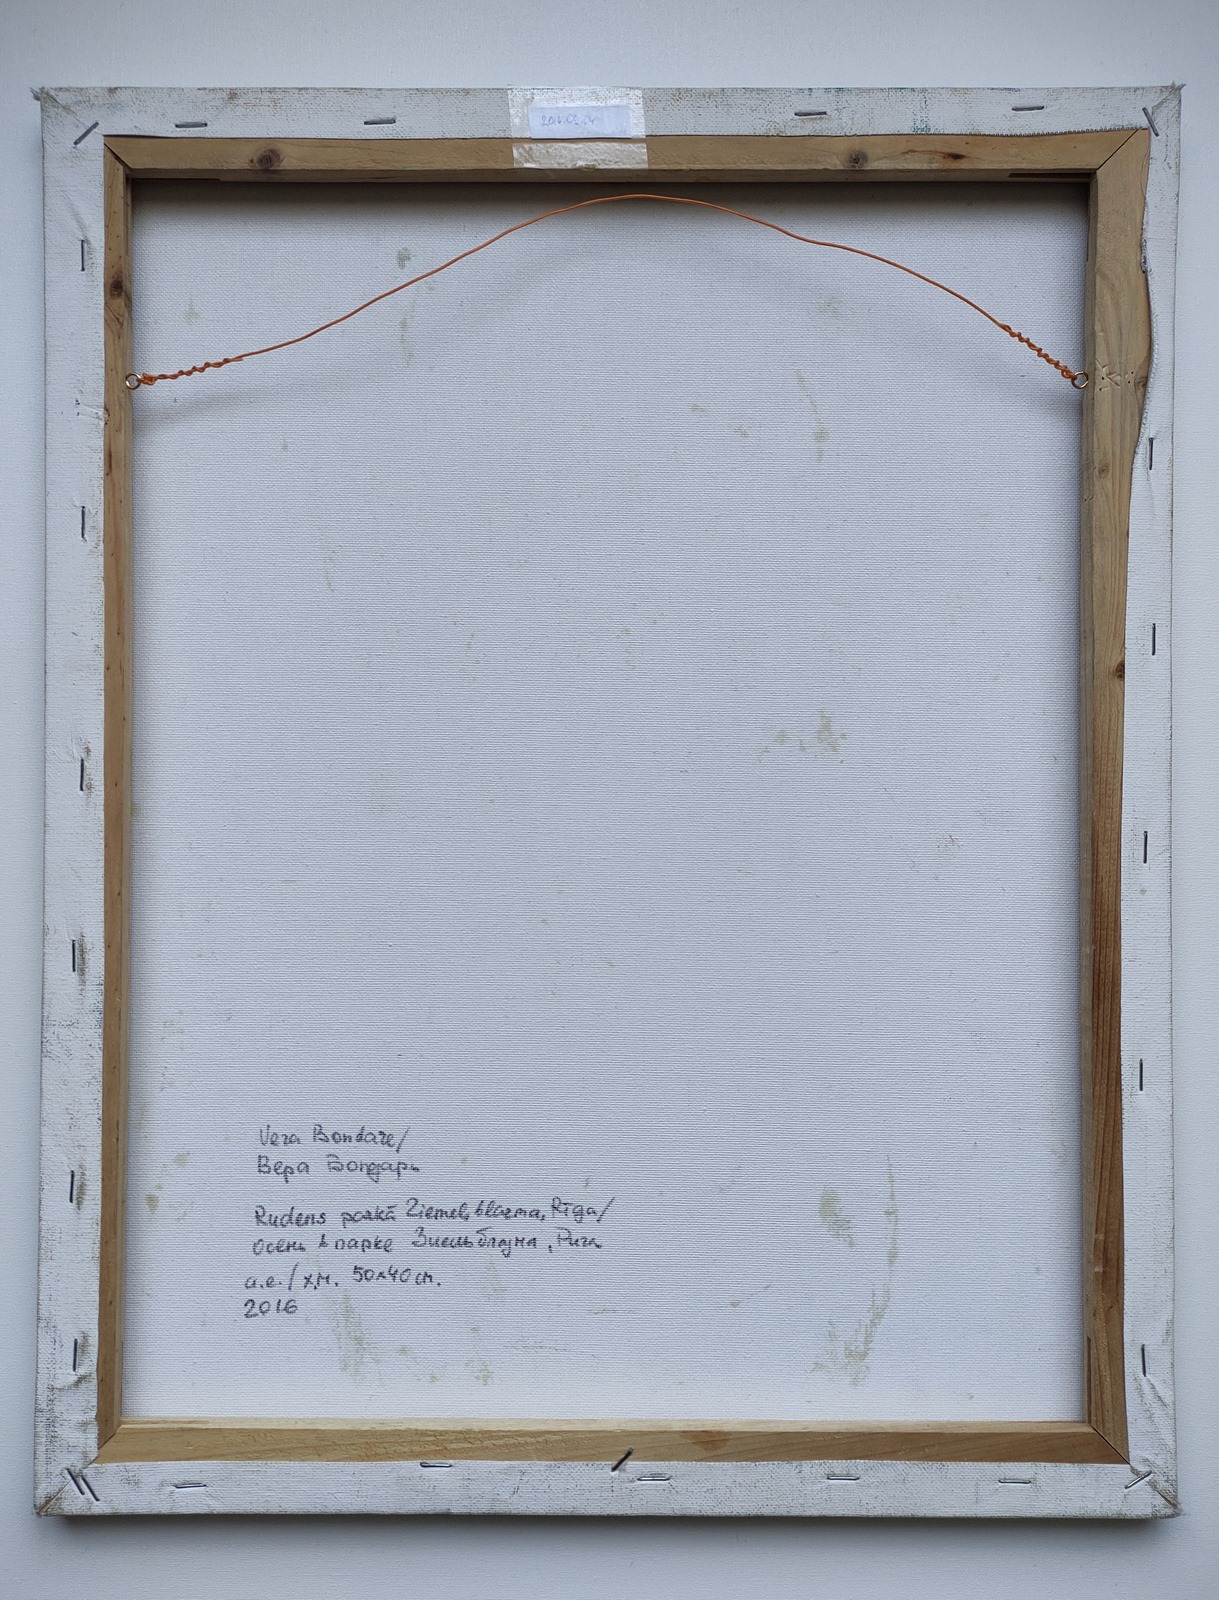 Vera Bondare/
Вера Бондарь
Rudens parkā Ziemeļblāzma, Rīga/
Осень в парке Зиемельблазма, Рига
a.e./х.м. 50x40 cm.
2016